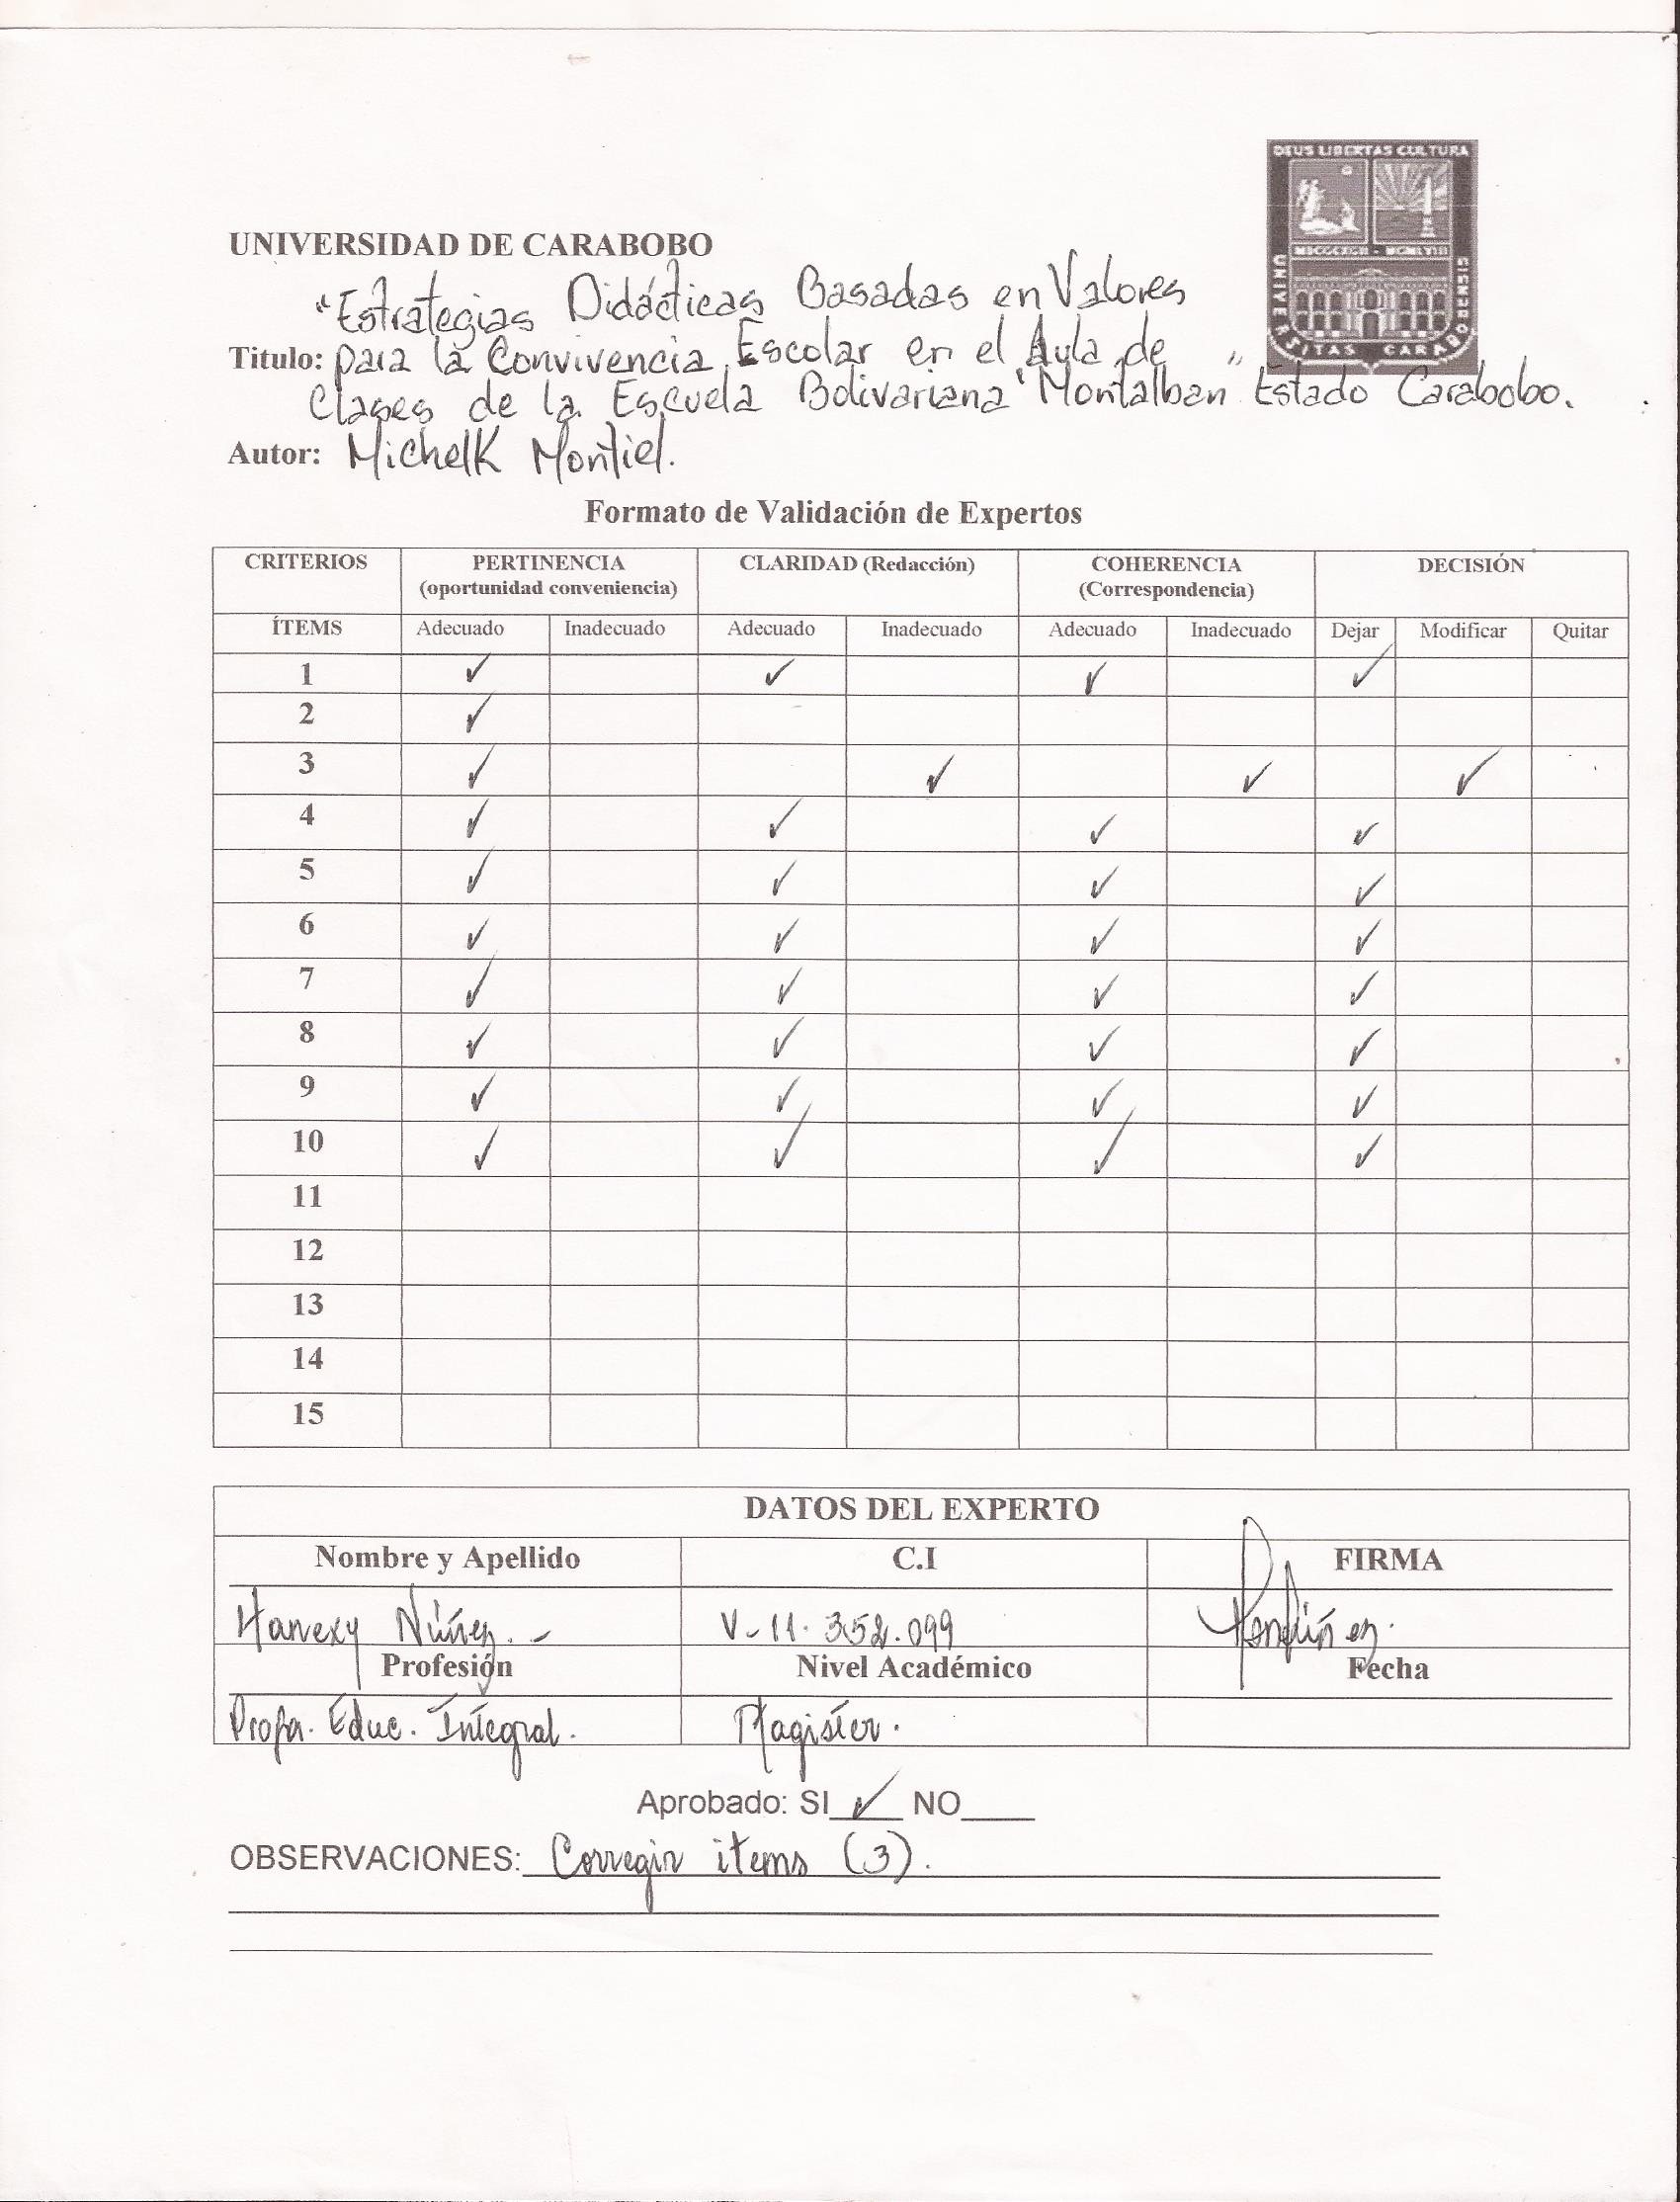 DEUS LIBERTAS CULTURA
UNIVERSITAS CARABOBENSIS
UNIVERSIDAD DE CARABOBO
"Estrategias Didácticas Basadas en Valores
Titulo: para la Convivencia Escolar en el Aula de
Clases de la Escuela Bolivariana "Montalban" Estado Carabobo.
Autor: MichelK Montiel.
Formato de Validación de Expertos
CRITERIOS PERTINENCIA (oportunidad conveniencia) CLARIDAD (Redacción) COHERENCIA (Correspondencia) DECISIÓN
ÍTEMS Adecuado Inadecuado Adecuado Inadecuado Adecuado Inadecuado Dejar Modificar Quitar
1 ✓ ✓ ✓ ✓
2 ✓
3 ✓ ✓ ✓ ✓
4 ✓ ✓ ✓ ✓
5 ✓ ✓ ✓ ✓
6 ✓ ✓ ✓ ✓
7 ✓ ✓ ✓ ✓
8 ✓ ✓ ✓ ✓
9 ✓ ✓ ✓ ✓
10 ✓ ✓ ✓ ✓
11
12
13
14
15
DATOS DEL EXPERTO
Nombre y Apellido C.I FIRMA
Hanexy Núñez.- V-11.352.099
Profesión Nivel Académico Fecha
Profa. Educ. Integral. Magister.
Aprobado: SI ✓ NO____
OBSERVACIONES: Corregir items (3).